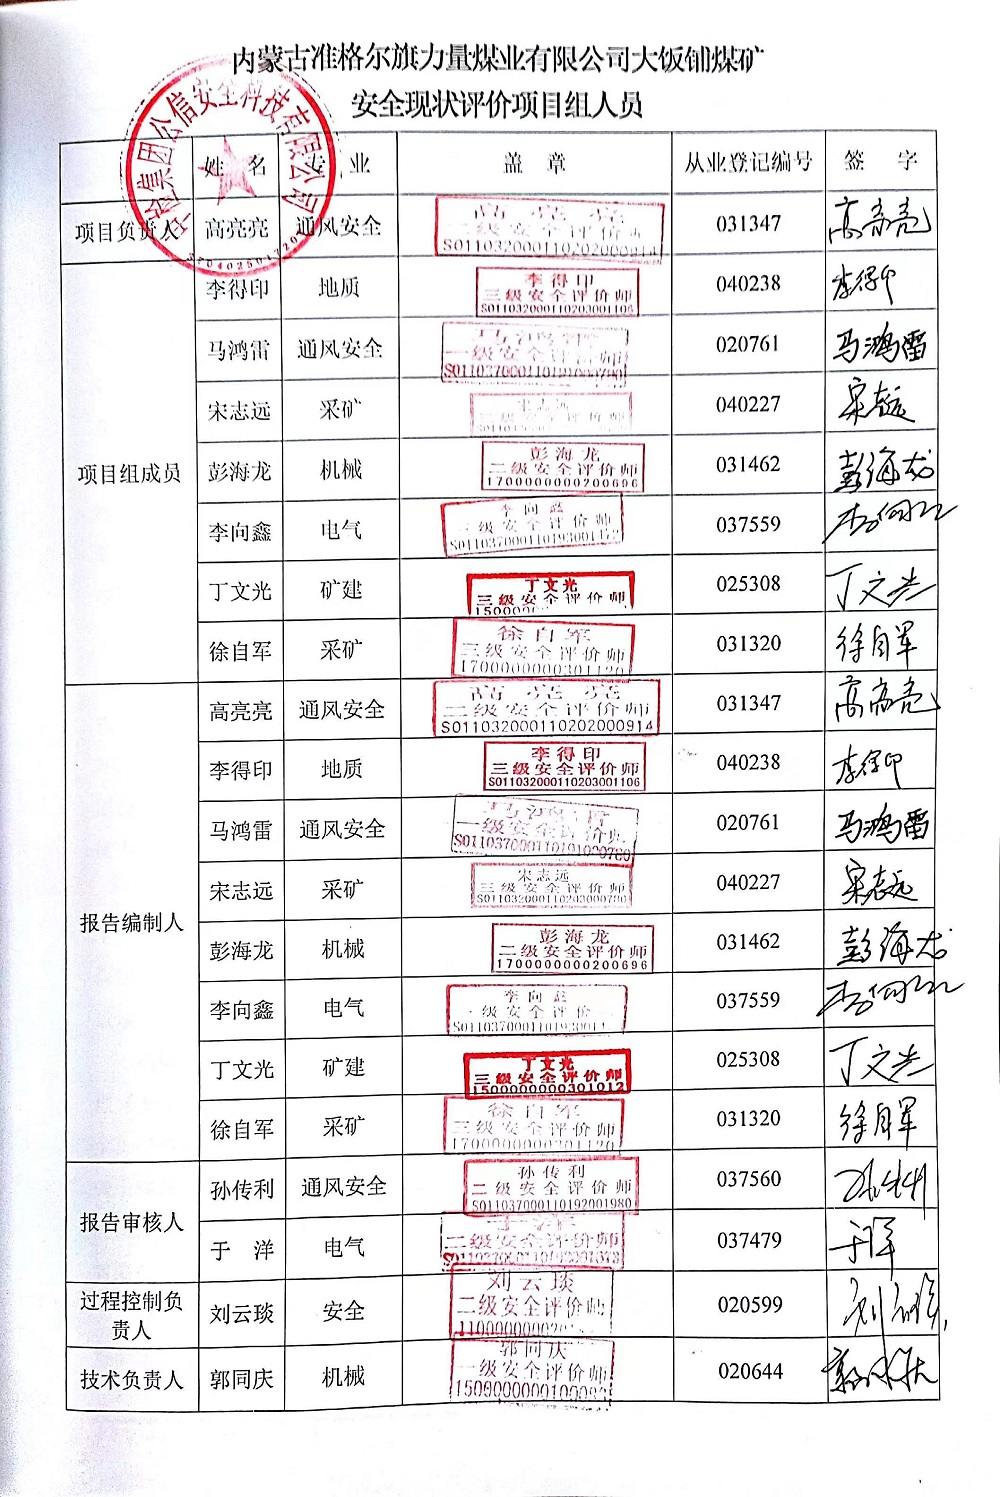 内蒙古准格尔旗力量煤业有限公司大饭铺煤矿
安全现状评价项目组人员
集团公信安全科技有限公司
姓 名 专 业 盖 章 从业登记编号 签 字
项目负责人 高亮亮 通风安全 高亮亮 031347 高亮亮
二级安全评价师
S011032000110202000914
项目组成员
李得印 地质 李得印 040238 李得印
三级安全评价师
S011032000110203001106
马鸿雷 通风安全 020761 马鸿雷
一级安全评价师
宋志远 采矿 宋志远 040227 宋志远
彭海龙 机械 彭海龙 031462 彭海龙
二级安全评价师
1700000000200696
李向鑫 电气 李向鑫 037559 李向鑫
丁文光 矿建 丁文光 025308 丁文光
三级安全评价师
15000000
徐自军 采矿 徐自军 031320 徐自军
三级安全评价师
1700000000301120
报告编制人
高亮亮 通风安全 高亮亮 031347 高亮亮
二级安全评价师
S011032000110202000914
李得印 地质 李得印 040238 李得印
三级安全评价师
S011032000110203001106
马鸿雷 通风安全 020761 马鸿雷
一级安全评价师
宋志远 采矿 宋志远 040227 宋志远
三级安全评价师
彭海龙 机械 彭海龙 031462 彭海龙
二级安全评价师
1700000000200696
李向鑫 电气 李向鑫 037559 李向鑫
丁文光 矿建 丁文光 025308 丁文光
三级安全评价师
1500000000301012
徐自军 采矿 徐自军 031320 徐自军
三级安全评价师
1700000000301120
报告审核人
孙传利 通风安全 孙传利 037560
二级安全评价师
S011037000110192001980
于 洋 电气 037479 于洋
二级安全评价师
过程控制负
责人
刘云琰 安全 刘云琰 020599
二级安全评价师
技术负责人 郭同庆 机械 郭同庆 020644 郭同庆
一级安全评价师